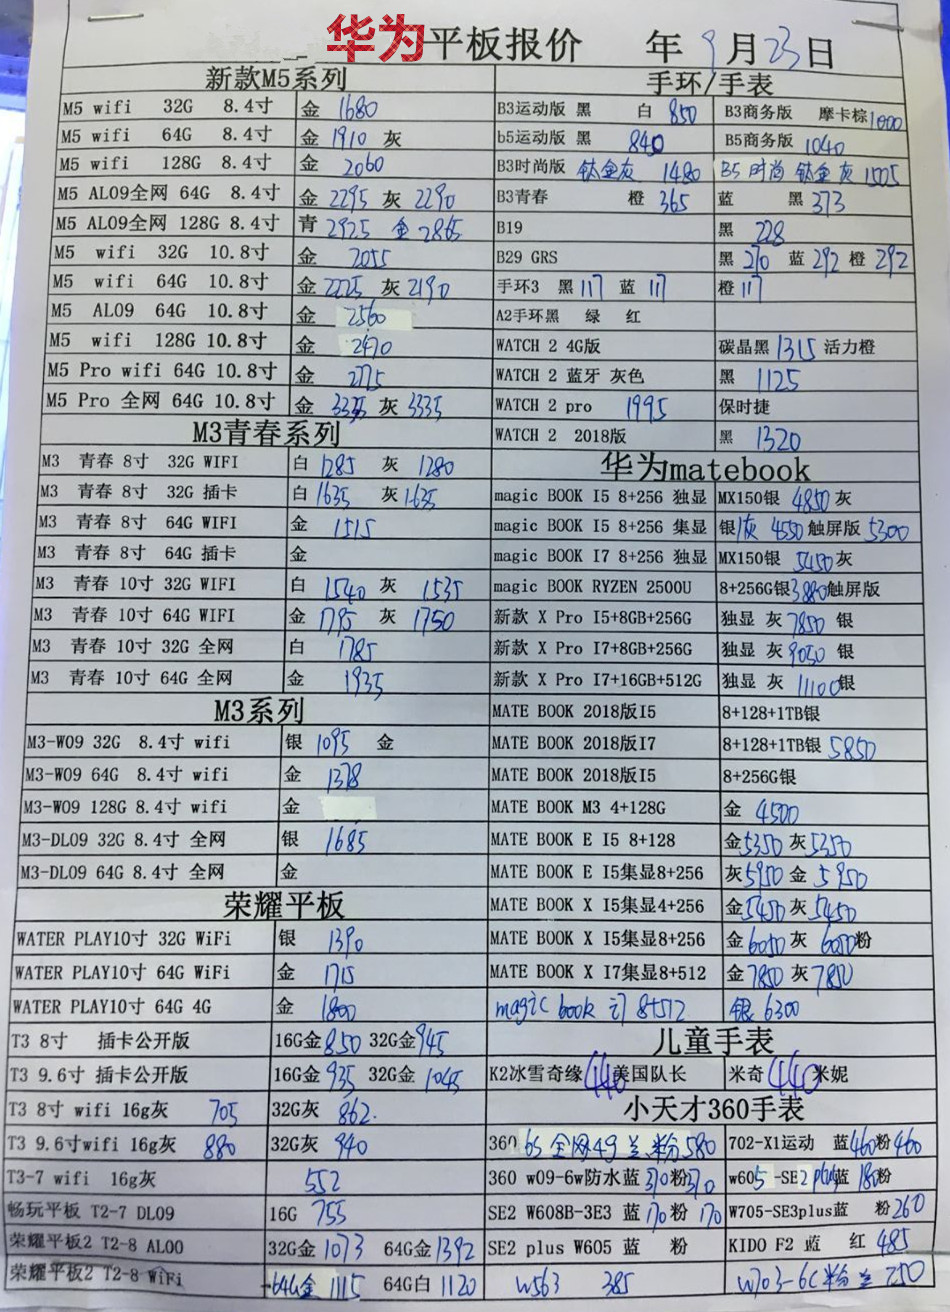 华为平板报价 年 9月23日
新款M5系列
M5 wifi 32G 8.4寸 金 1680
M5 wifi 64G 8.4寸 金 1910 灰
M5 wifi 128G 8.4寸 金 2060
M5 AL09全网 64G 8.4寸 金 2295 灰 2290
M5 AL09全网 128G 8.4寸 青 2925 金 2865
M5 wifi 32G 10.8寸 金 2055
M5 wifi 64G 10.8寸 金 2225 灰 2190
M5 AL09 64G 10.8寸 金 2560
M5 wifi 128G 10.8寸 金 2470
M5 Pro wifi 64G 10.8寸 金 2775
M5 Pro 全网 64G 10.8寸 金 3335 灰 3335
M3青春系列
M3 青春 8寸 32G WIFI 白 1285 灰 1280
M3 青春 8寸 32G 插卡 白 1635 灰 1635
M3 青春 8寸 64G WIFI 金 1515
M3 青春 8寸 64G 插卡 金
M3 青春 10寸 32G WIFI 白 1540 灰 1535
M3 青春 10寸 64G WIFI 金 1795 灰 1750
M3 青春 10寸 32G 全网 白 1785
M3 青春 10寸 64G 全网 金 1935
M3系列
M3-W09 32G 8.4寸 wifi 银 1095 金
M3-W09 64G 8.4寸 wifi 金 1378
M3-W09 128G 8.4寸 wifi 金
M3-DL09 32G 8.4寸 全网 银 1685
M3-DL09 64G 8.4寸 全网 金
荣耀平板
WATER PLAY10寸 32G WiFi 银 1390
WATER PLAY10寸 64G WiFi 金 1715
WATER PLAY10寸 64G 4G 金 1800
T3 8寸 插卡公开版 16G金 850 32G金 945
T3 9.6寸 插卡公开版 16G金 935 32G金 1045
T3 8寸 wifi 16g灰 705 32G灰 862.
T3 9.6寸wifi 16g灰 880 32G灰 940
T3-7 wifi 16g灰 552
畅玩平板 T2-7 DL09 16G 755
荣耀平板2 T2-8 AL00 32G金 1073 64G金 1392
荣耀平板2 T2-8 WiFi 64G金 1115 64G白 1120
手环/手表
B3运动版 黑 白 850 B3商务版 摩卡棕 1000
b5运动版 黑 840 B5商务版 1040
B3时尚版 钛金灰 1480 B5 时尚 钛金灰 1505
B3青春 橙 365 蓝 黑 373
B19 黑 228
B29 GRS 黑 270 蓝 292 橙 292
手环3 黑 117 蓝 117 橙 117
A2手环黑 绿 红
WATCH 2 4G版 碳晶黑 1315 活力橙
WATCH 2 蓝牙 灰色 黑 1125
WATCH 2 pro 1995 保时捷
WATCH 2 2018版 黑 1320
华为matebook
magic BOOK I5 8+256 独显 MX150银 4850 灰
magic BOOK I5 8+256 集显 银/灰 4550 触屏版 5300
magic BOOK I7 8+256 独显 MX150银 5450 灰
magic BOOK RYZEN 2500U 8+256G银 3880 触屏版
新款 X Pro I5+8GB+256G 独显 灰 7850 银
新款 X Pro I7+8GB+256G 独显 灰 9050 银
新款 X Pro I7+16GB+512G 独显 灰 11100 银
MATE BOOK 2018版I5 8+128+1TB银
MATE BOOK 2018版I7 8+128+1TB银 5850
MATE BOOK 2018版I5 8+256G银
MATE BOOK M3 4+128G 金 4500
MATE BOOK E I5 8+128 金 5350 灰 5350
MATE BOOK E I5集显8+256 灰 5950 金 5950
MATE BOOK X I5集显4+256 金 5450 灰 5450
MATE BOOK X I5集显8+256 金 6050 灰 6050 粉
MATE BOOK X I7集显8+512 金 7850 灰 7850
magic book i7 8+512 银 6300
儿童手表
K2冰雪奇缘 440 美国队长 米奇 440 米妮
小天才360手表
360 6S 全网4G 兰.粉 580 702-X1运动 蓝 460 粉 460
360 w09-6w防水蓝 370 粉 370 w605-SE2 plus蓝 180 粉
SE2 W608B-3E3 蓝 170 粉 170 W705-SE3plus蓝 粉 260
SE2 plus W605 蓝 粉 KIDO F2 蓝 红 485
W563 385 W703-6C 粉 兰 250